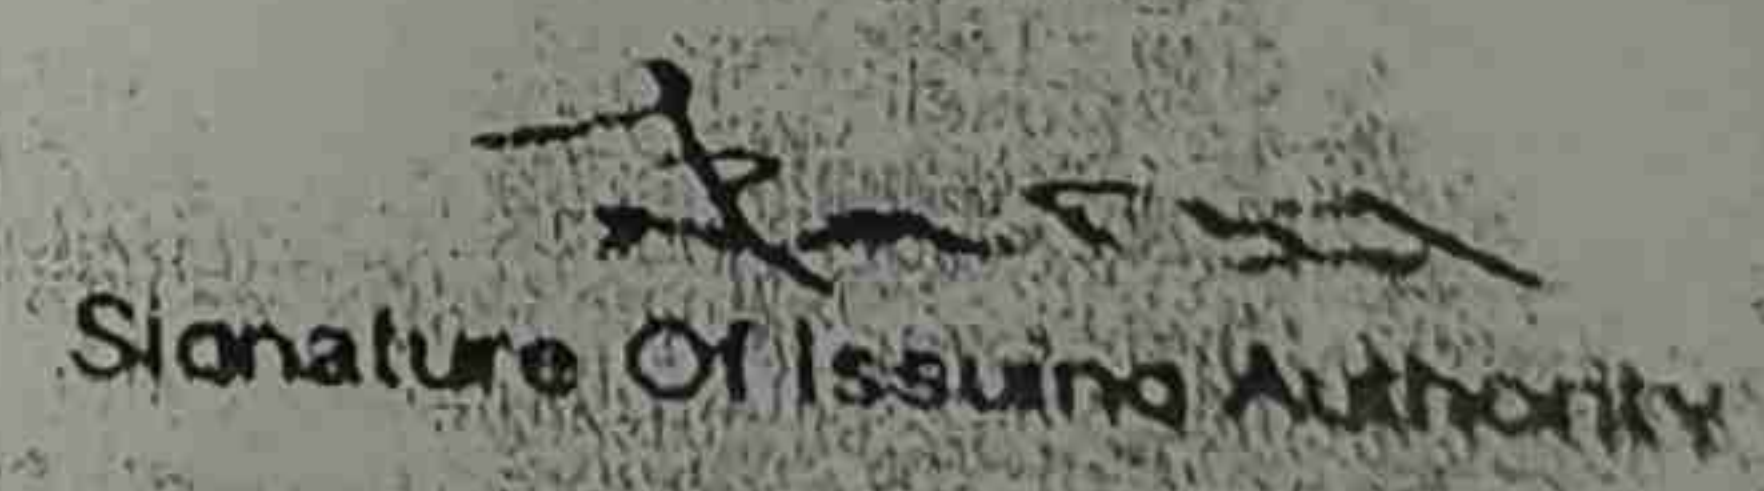 Signature Of Issuing Authority